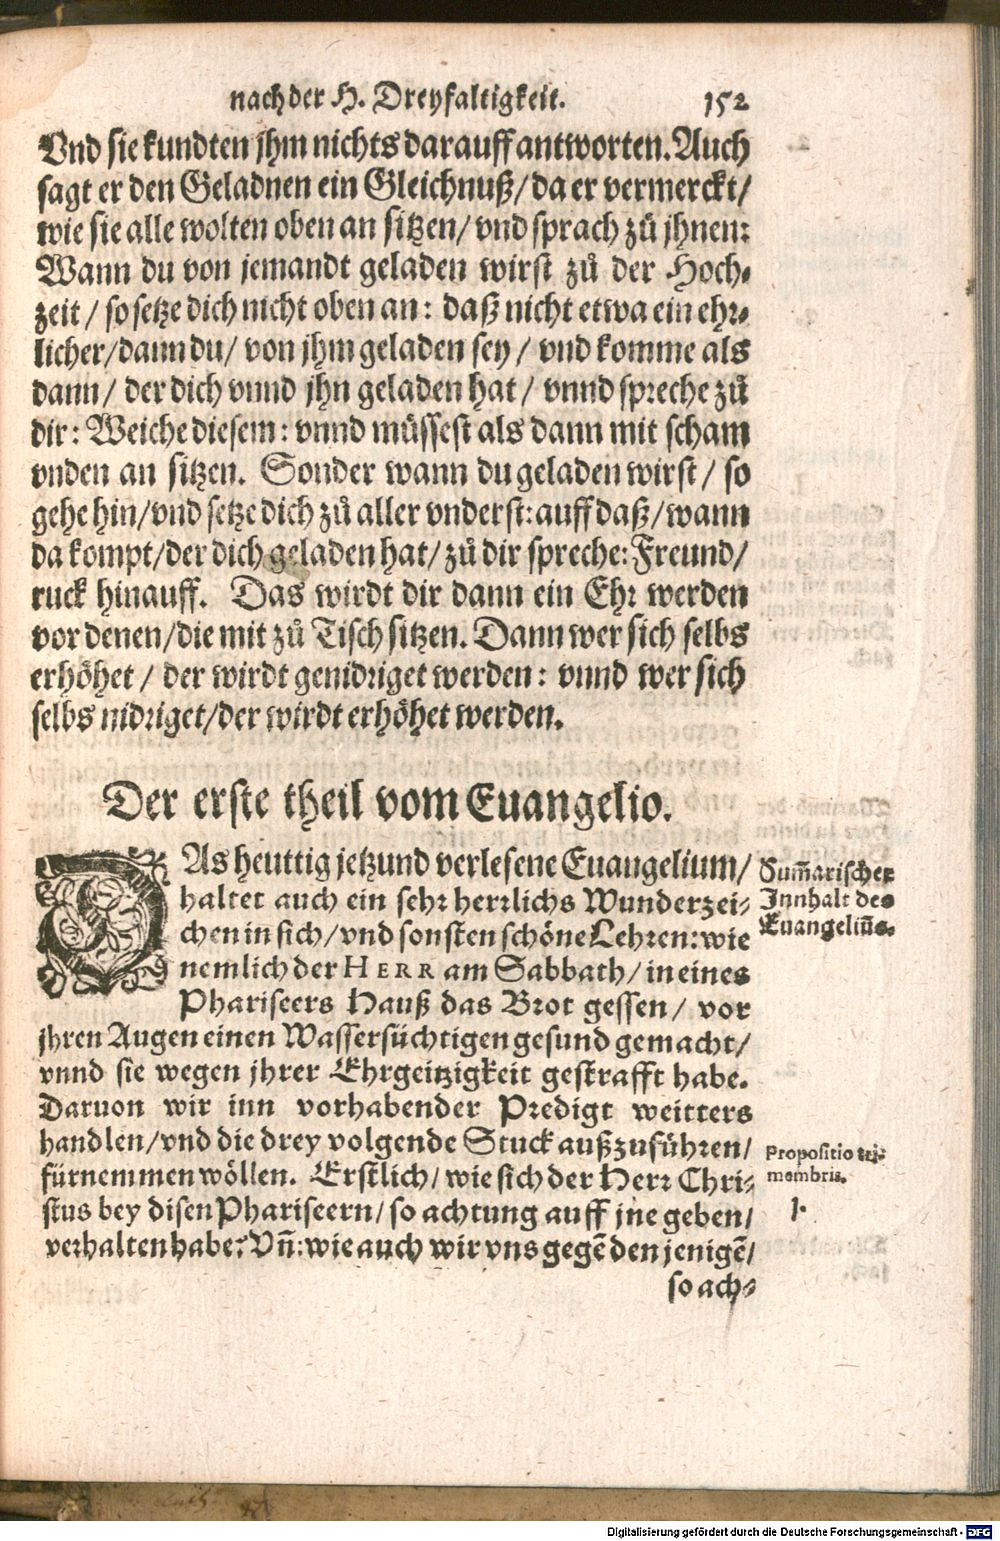 nach der H. Dreyfaltigkeit. 152
Vnd sie kundten jhm nichts darauff antworten. Auch
sagt er den Geladnen ein Gleichnuß/ da er vermerckt/
wie sie alle wolten oben an sitzen/ vnd sprach zů jhnen:
Wann du von jemandt geladen wirst zů der Hoch-
zeit / so setze dich nicht oben an: daß nicht etwa ein ehr-
licher/ dann du/ von jhm geladen sey / vnd komme als
dann/ der dich vnnd jhn geladen hat / vnnd spreche zů
dir: Weiche diesem: vnnd müssest als dann mit scham
vnden an sitzen. Sonder wann du geladen wirst / so
gehe hin/ vnd setze dich zů aller vnderst: auff daß/ wann
da kompt/ der dich geladen hat/ zů dir spreche: Freund/
ruck hinauff. Das wirdt dir dann ein Ehr werden
vor denen/ die mit zů Tisch sitzen. Dann wer sich selbs
erhöhet / der wirdt genidriget werden: vnnd wer sich
selbs nidriget/ der wirdt erhöhet werden.
Der erste theil vom Euangelio.
DAs heuttig jetzund verlesene Euangelium/
haltet auch ein sehr herrlichs Wunderzei-
chen in sich/ vnd sonsten schöne Lehren: wie
nemlich der HERR am Sabbath/ in eines
Phariseers Hauß das Brot gessen/ vor
jhren Augen einen Wassersüchtigen gesund gemacht/
vnnd sie wegen jhrer Ehrgeitzigkeit gestrafft habe.
Daruon wir inn vorhabender Predigt weitters
handlen/ vnd die drey volgende Stuck außzuführen/
fürnemmen wöllen. Erstlich/ wie sich der Herr Chri-
stus bey disen Phariseern/ so achtung auff jne geben/
verhalten habe: Vñ: wie auch wir vns gegē den jenigē/
so ach-
Sum̃arischer
Innhalt des
Euangeliūs.
Propositio tri-
membris.
1.
Digitalisierung gefördert durch die Deutsche Forschungsgemeinschaft - DFG